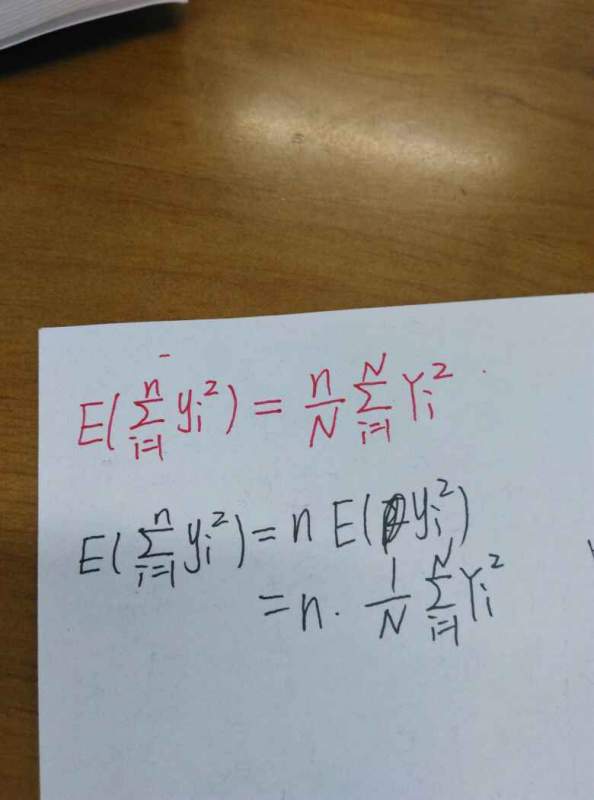 E(∑_{i=1}^{n} y_i^2) = \frac{n}{N} ∑_{i=1}^{N} Y_i^2
E(∑_{i=1}^{n} y_i^2) = n E(y_i^2)
= n · \frac{1}{N} ∑_{i=1}^{N} Y_i^2